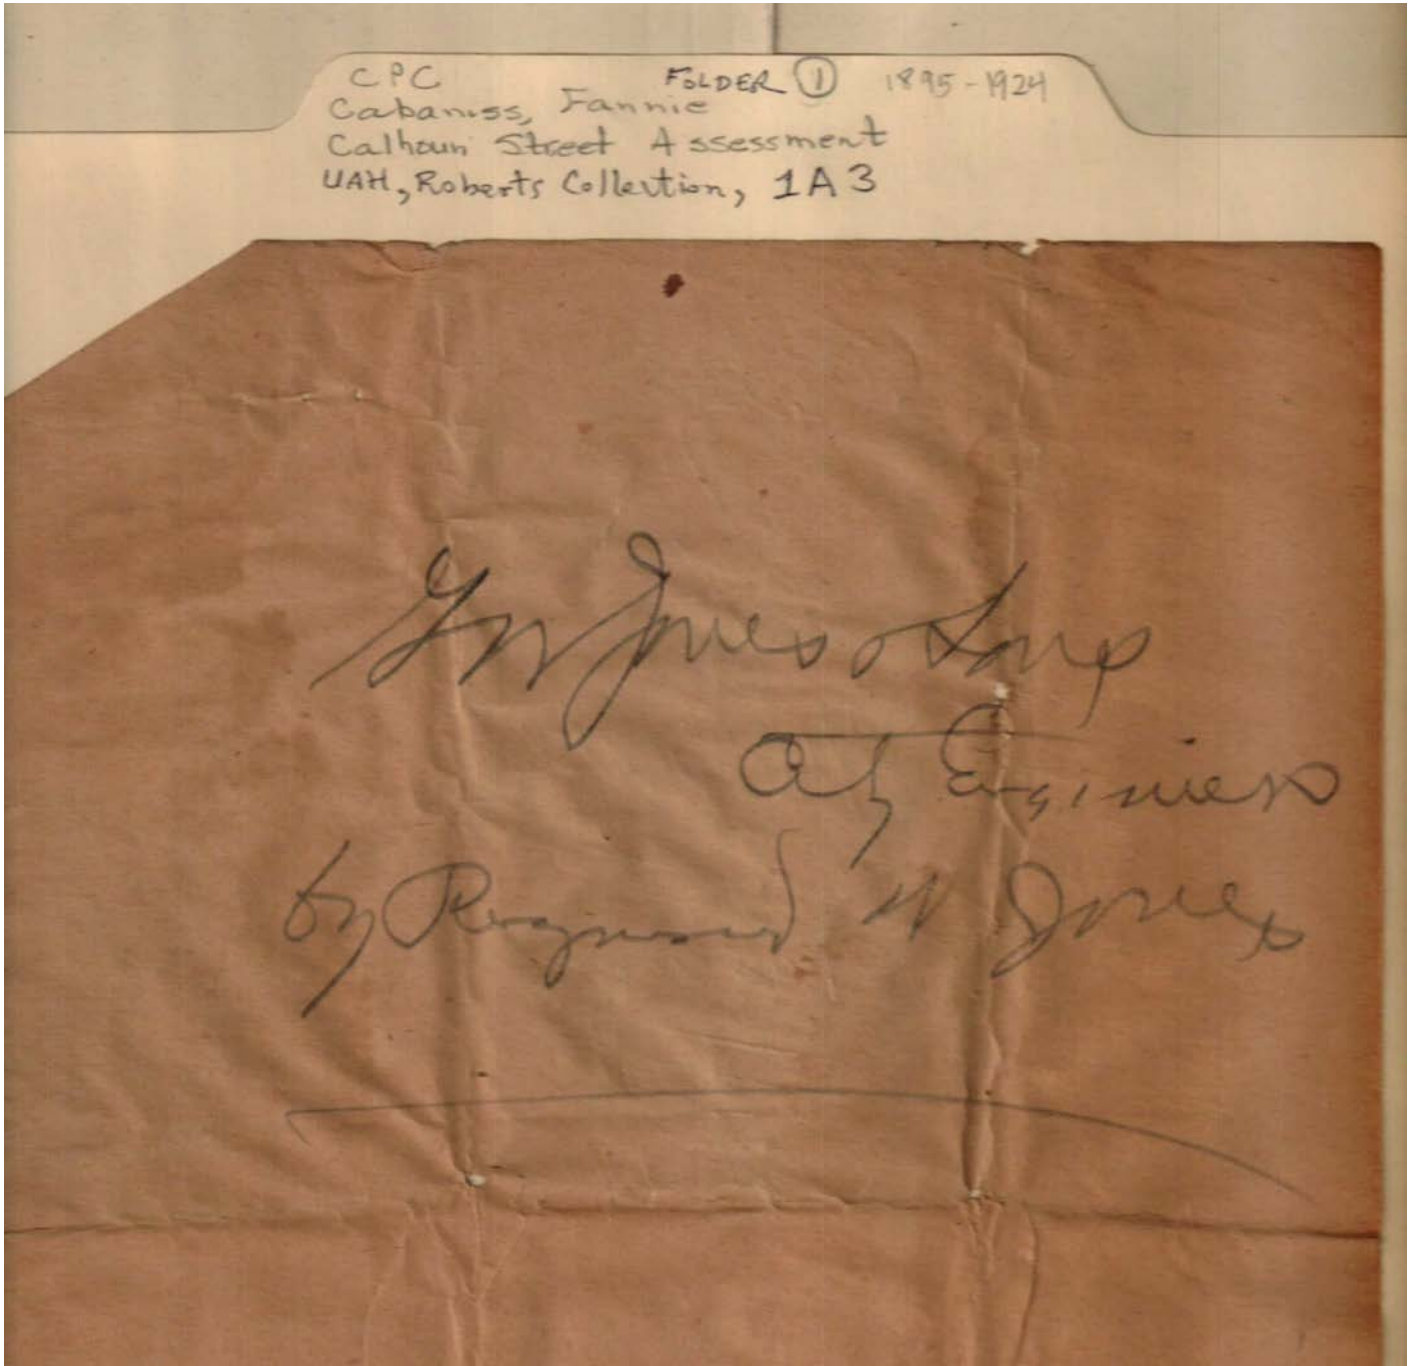 CPC FOLDER 1 1895-1924
Cabaniss, Fannie
Calhoun Street Assessment
UAH, Roberts Collection, 1A3
GW Jones & Sons
Engineers
by Raymond W Jones